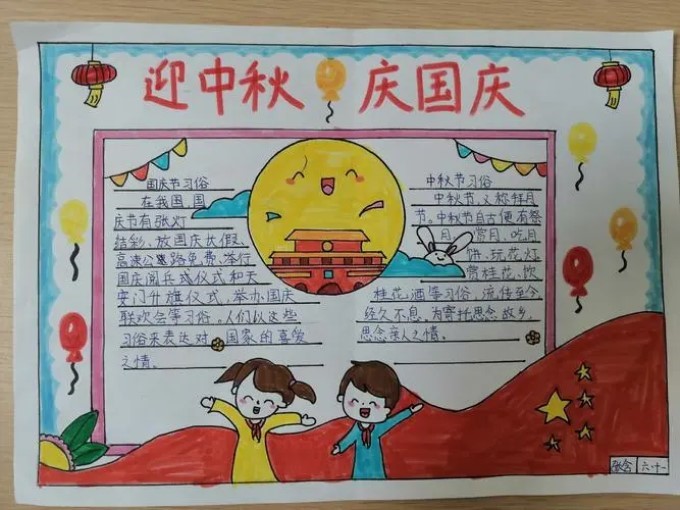 迎中秋 庆国庆
国庆节习俗
在我国,国
庆节有张灯
结彩、放国庆长假、
高速公路免费、举行
国庆阅兵或仪式和天
安门升旗仪式,举办国庆
联欢会等习俗。人们以这些
习俗来表达对 国家的喜爱
之情。
中秋节习俗
中秋节,又称拜月
节。中秋节自古便有祭
月、赏月、吃月
饼、玩花灯
赏桂花、饮
桂花酒等习俗,流传至今,
经久不息,为寄托思念故乡,
思念亲人之情。
六十一